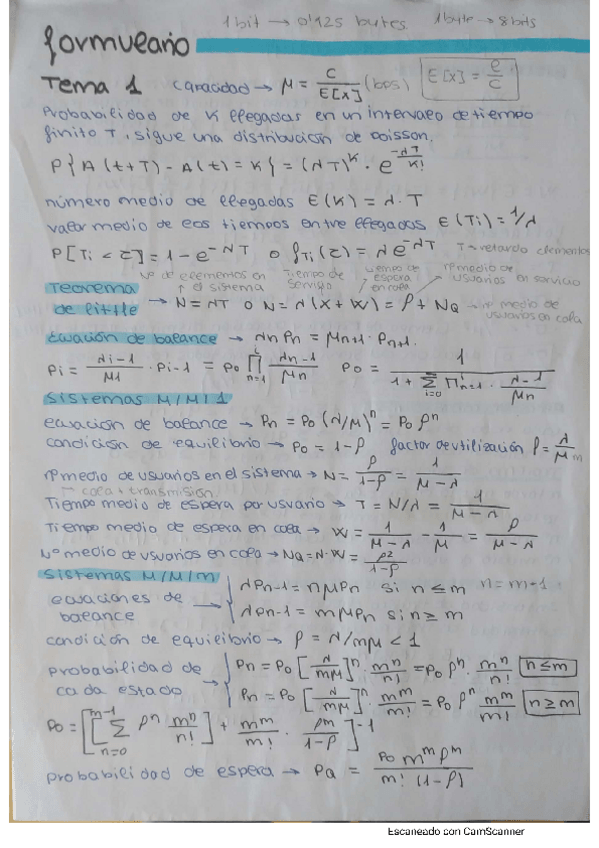 1 bit → 0'125 bytes. 1 byte → 8 bits
formulario
Tema 1 capacidad → μ = C/E[X] (bps) E[X] = l/c
Probabilidad de K llegadas en un intervalo de tiempo
finito T, sigue una distribución de Poisson.
P{A(t+T) - A(t) = K} = (λT)^K · e^-λT/K!
número medio de llegadas E(K) = λ·T
valor medio de los tiempos entre llegadas E(Ti) = 1/λ
P[Ti < τ] = 1 - e^-λT o fTi(τ) = λe^-λT T → retardo elementos
Nº de elementos en el sistema Tiempo de servicio tiempo de espera en cola nº medio de usuarios en servicio
Teorema de little → N = λT o N = λ(X + W) = ρ + NQ → nº medio de usuarios en cola
Ecuación de balance → λn Pn = μn+1 · Pn+1.
Pi = λi-1/μ1 · Pi-1 = P0 ∏ n=1 i λn-1/μn P0 = 1/(1 + Σ i=0 ∏ i n=1 · λ-1/μn)
Sistemas M/M/1
ecuación de balance → Pn = P0 (λ/μ)^n = P0 ρ^n
condición de equilibrio → P0 = 1-ρ factor de utilización ρ = λ/μm
nº medio de usuarios en el sistema → N = ρ/(1-ρ) = 1/(μ-λ)
→ cola + transmisión
Tiempo medio de espera por usuario → T = N/λ = 1/(μ-λ)
Tiempo medio de espera en cola → W = 1/(μ-λ) - 1/μ = ρ/(μ-λ)
Nº medio de usuarios en cola → NQ = λ·W = ρ2/(1-ρ)
Sistemas M/M/m
ecuaciones de balance → { λPn-1 = nμPn si n ≤ m n = m-1
λPn-1 = mμPn si n ≥ m
condición de equilibrio → ρ = λ/mμ < 1
probabilidad de cada estado → { Pn = P0 [λ/mμ]^n · m^n/n! = P0 ρ^n · m^n/n! n≤m
Pn = P0 [λ/mμ]^n · m^m/m! = P0 ρ^n m^m/m! n ≥ m
P0 = [[Σ n=0 m-1 ρ^n m^n/n!] + m^m/m! · ρ^m/(1-ρ)]^-1
probabilidad de espera → Pa = P0 m^m ρ^m/(m! (1-ρ))
Escaneado con CamScanner